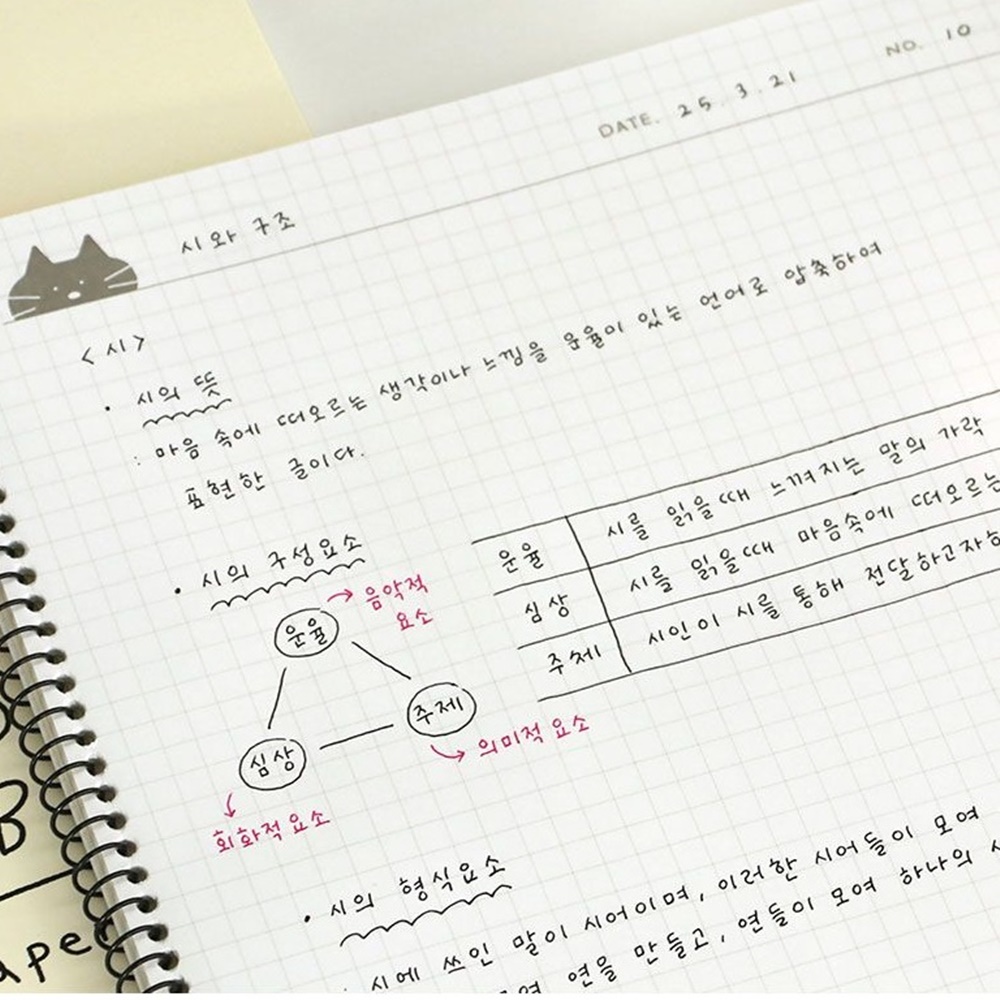 DATE. 25. 3. 21
NO. 10
시와 구조
<시>
· 시의 뜻
: 마음 속에 떠오르는 생각이나 느낌을 운율이 있는 언어로 압축하여
표현한 글이다.
· 시의 구성요소
운율 → 음악적
요소
주제
→ 의미적 요소
심상
회화적 요소
운율 시를 읽을때 느껴지는 말의 가락
심상 시를 읽을때 마음속에 떠오르는
주제 시인이 시를 통해 전달하고자
· 시의 형식요소
: 시에 쓰인 말이 시어이며, 이러한 시어들이 모여
연을 만들고, 연들이 모여 하나의
B